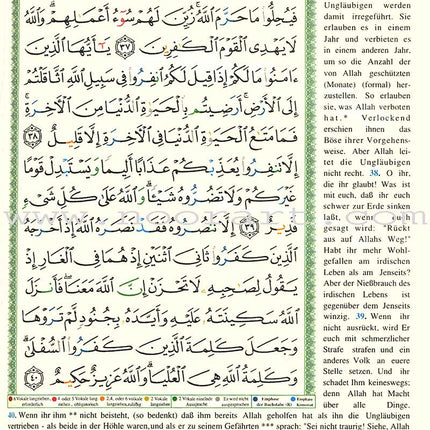 فَيُحِلُّوا۟ مَا حَرَّمَ ٱللَّهُ زُيِّنَ لَهُمْ سُوٓءُ أَعْمَٰلِهِمْ وَٱللَّهُ
لَا يَهْدِى ٱلْقَوْمَ ٱلْكَٰفِرِينَ ٣٧ يَٰٓأَيُّهَا ٱلَّذِينَ
ءَامَنُوا۟ مَا لَكُمْ إِذَا قِيلَ لَكُمُ ٱنفِرُوا۟ فِى سَبِيلِ ٱللَّهِ ٱثَّاقَلْتُمْ
إِلَى ٱلْأَرْضِ أَرَضِيتُم بِٱلْحَيَوٰةِ ٱلدُّنْيَا مِنَ ٱلْءَاخِرَةِ
فَمَا مَتَٰعُ ٱلْحَيَوٰةِ ٱلدُّنْيَا فِى ٱلْءَاخِرَةِ إِلَّا قَلِيلٌ ٣٨
إِلَّا تَنفِرُوا۟ يُعَذِّبْكُمْ عَذَابًا أَلِيمًا وَيَسْتَبْدِلْ قَوْمًا
غَيْرَكُمْ وَلَا تَضُرُّوهُ شَيْـًٔا وَٱللَّهُ عَلَىٰ كُلِّ شَىْءٍ
قَدِيرٌ ٣٩ إِلَّا تَنصُرُوهُ فَقَدْ نَصَرَهُ ٱللَّهُ إِذْ أَخْرَجَهُ
ٱلَّذِينَ كَفَرُوا۟ ثَانِىَ ٱثْنَيْنِ إِذْ هُمَا فِى ٱلْغَارِ إِذْ
يَقُولُ لِصَٰحِبِهِۦ لَا تَحْزَنْ إِنَّ ٱللَّهَ مَعَنَا فَأَنزَلَ
ٱللَّهُ سَكِينَتَهُۥ عَلَيْهِ وَأَيَّدَهُۥ بِجُنُودٍ لَّمْ تَرَوْهَا
وَجَعَلَ كَلِمَةَ ٱلَّذِينَ كَفَرُوا۟ ٱلسُّفْلَىٰ
وَكَلِمَةُ ٱللَّهِ هِىَ ٱلْعُلْيَا وَٱللَّهُ عَزِيزٌ حَكِيمٌ ٤٠
Ungläubigen werden
damit irregeführt. Sie
erlauben es in einem
Jahr und verbieten es
in einem anderen Jahr,
um so die Anzahl der
von Allah geschützten
(Monate) (formal) her-
zustellen. So erlauben
sie, was Allah verboten
hat.* Verlockend
erschien ihnen das
Böse ihrer Vorgehens-
weise. Aber Allah lei-
tet die Ungläubigen
nicht recht. 38. O ihr,
die ihr glaubt! Was ist
mit euch, daß ihr euch
schwer zur Erde sinken
laßt, wenn euch
gesagt wird: "Rückt
aus auf Allahs Weg!"
Habt ihr mehr Wohl-
gefallen am irdischen
Leben als am Jenseits?
Aber der Nießbrauch des
irdischen Lebens ist
gegenüber dem Jenseits
winzig. 39. Wenn ihr
nicht ausrückt, wird Er
euch mit schmerzlicher
Strafe strafen und ein
anderes Volk an euere
Stelle setzen. Und ihr
schadet Ihm keineswegs:
denn Allah hat Macht
über alle Dinge.
40. Wenn ihr ihm ** nicht beisteht, (so bedenkt) daß ihm bereits Allah geholfen hat als ihn die Ungläubigen
vertrieben - als beide in der Höhle waren,und als er zu seinem Gefährten *** sprach: "Sei nicht traurig! Siehe, Allah